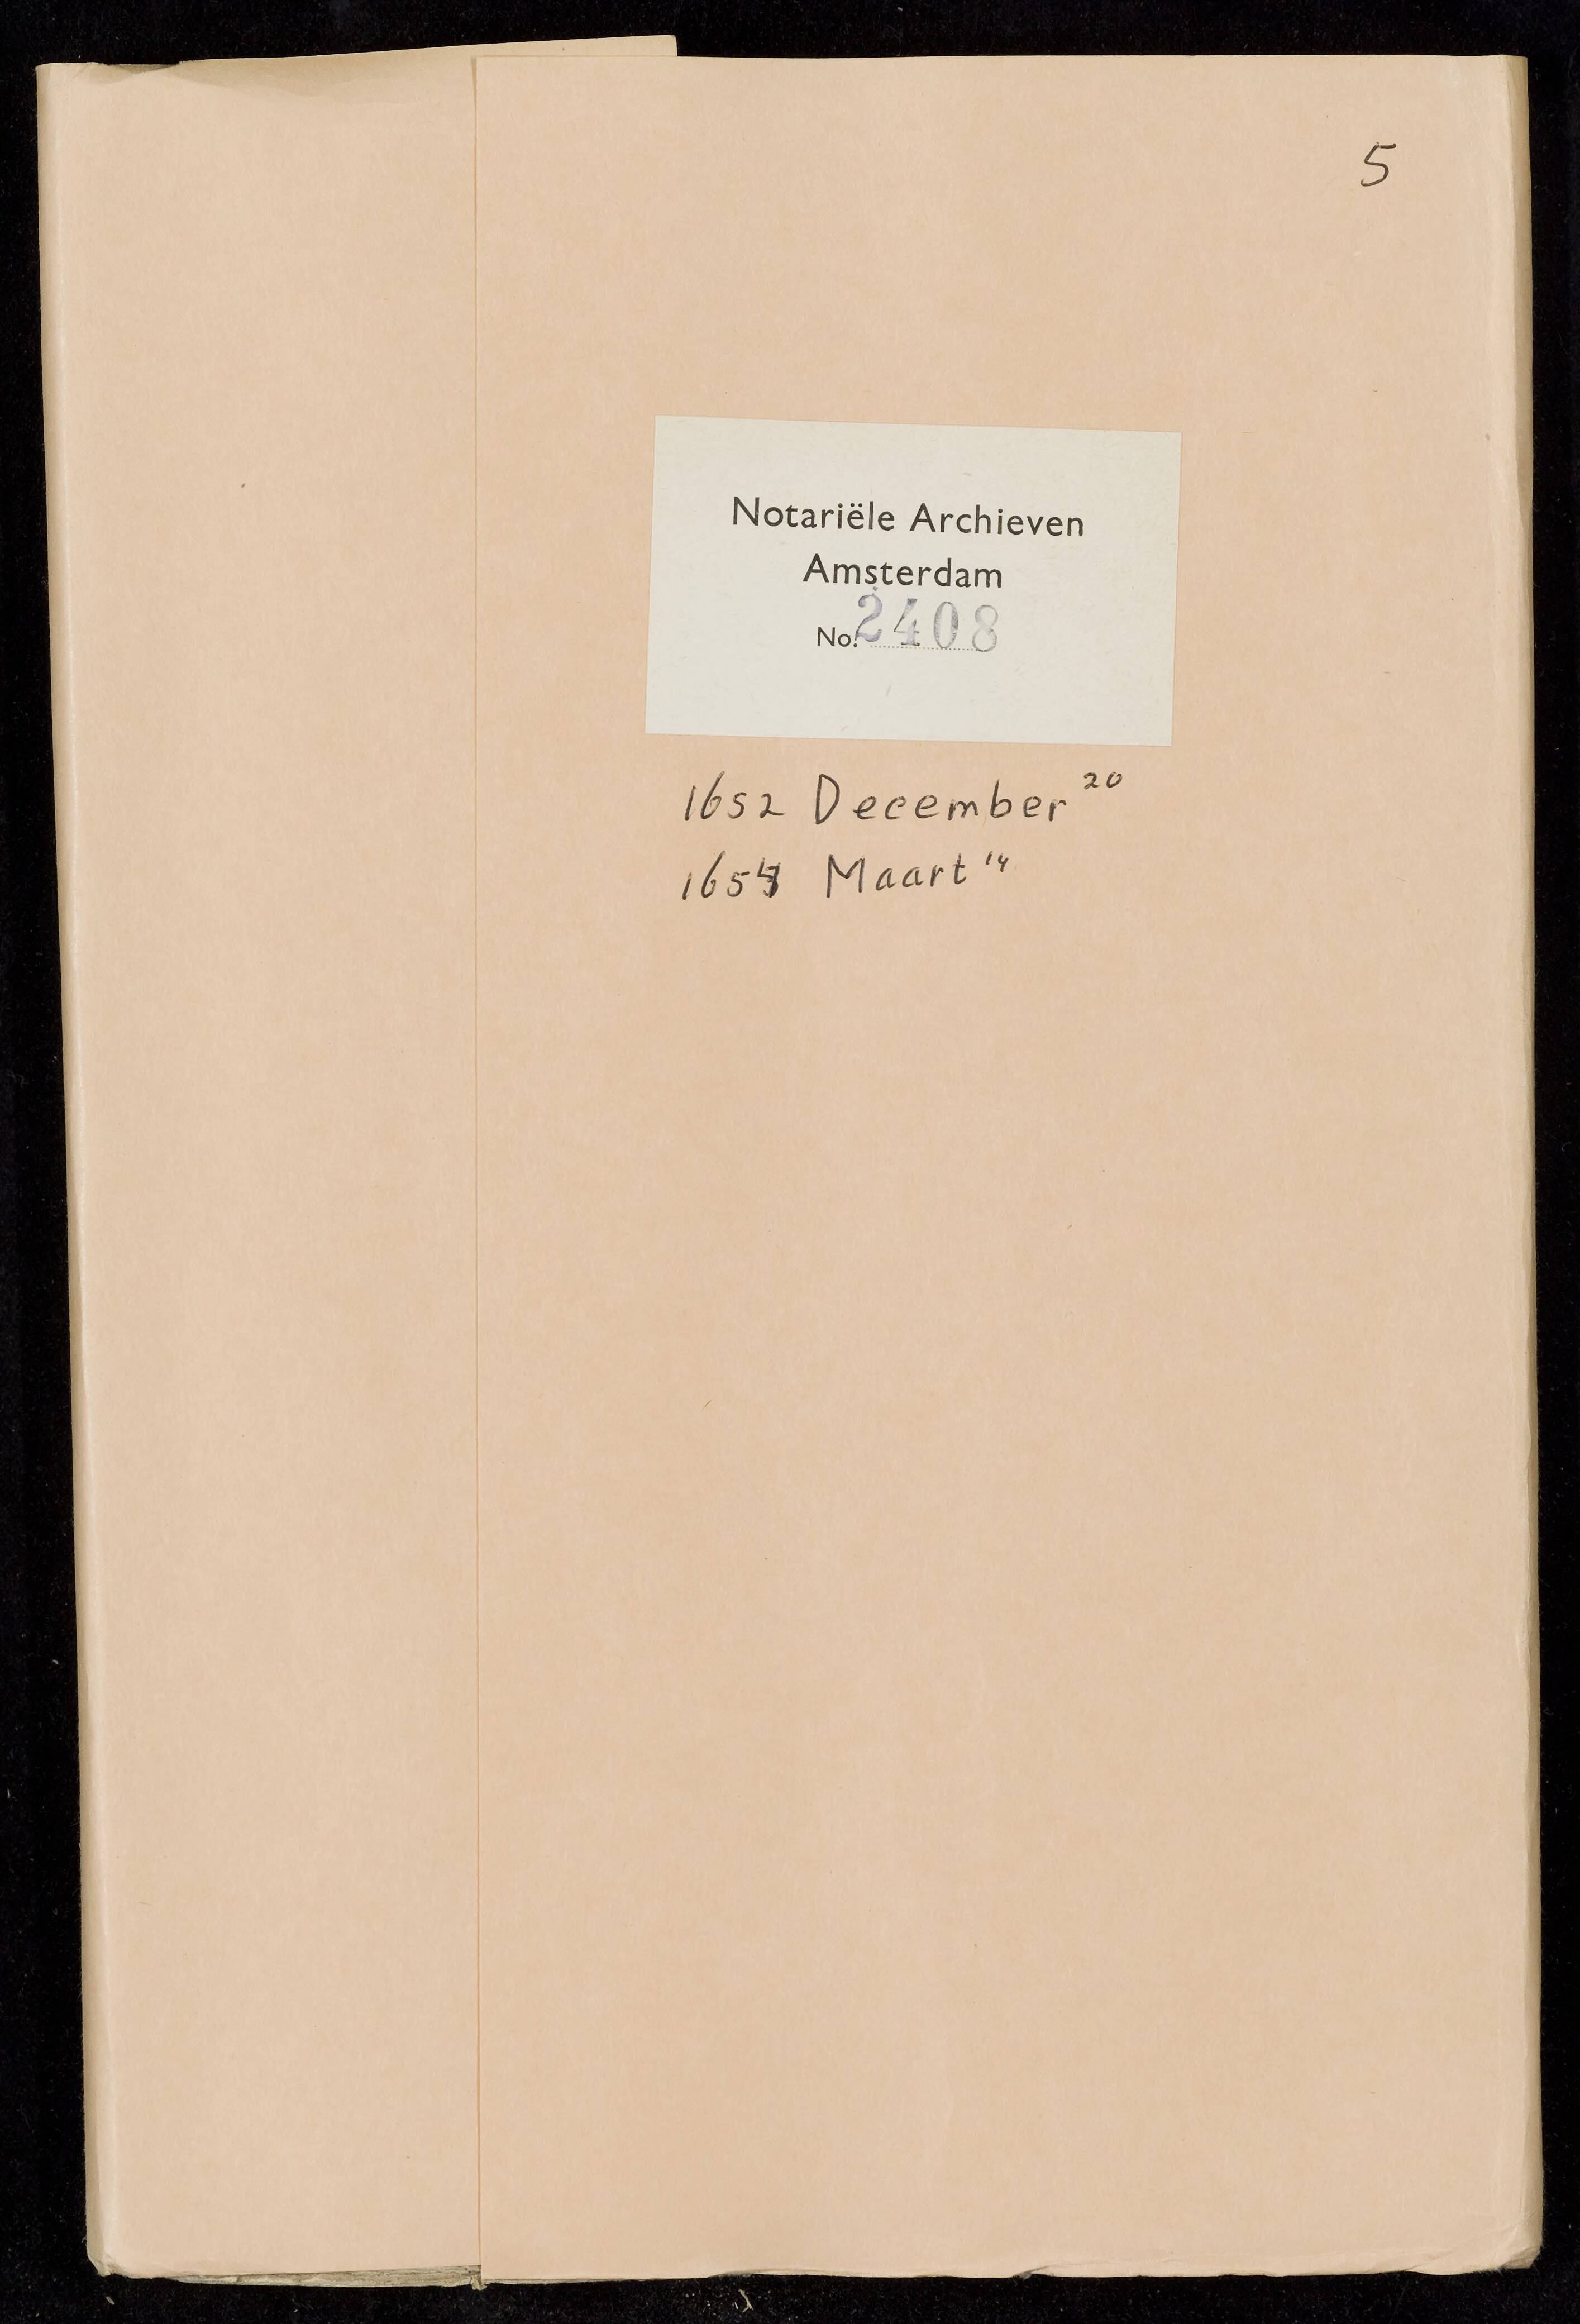 5
Notariële Archieven
Amsterdam
No. 2408
1652 December 20
1654 Maart 14